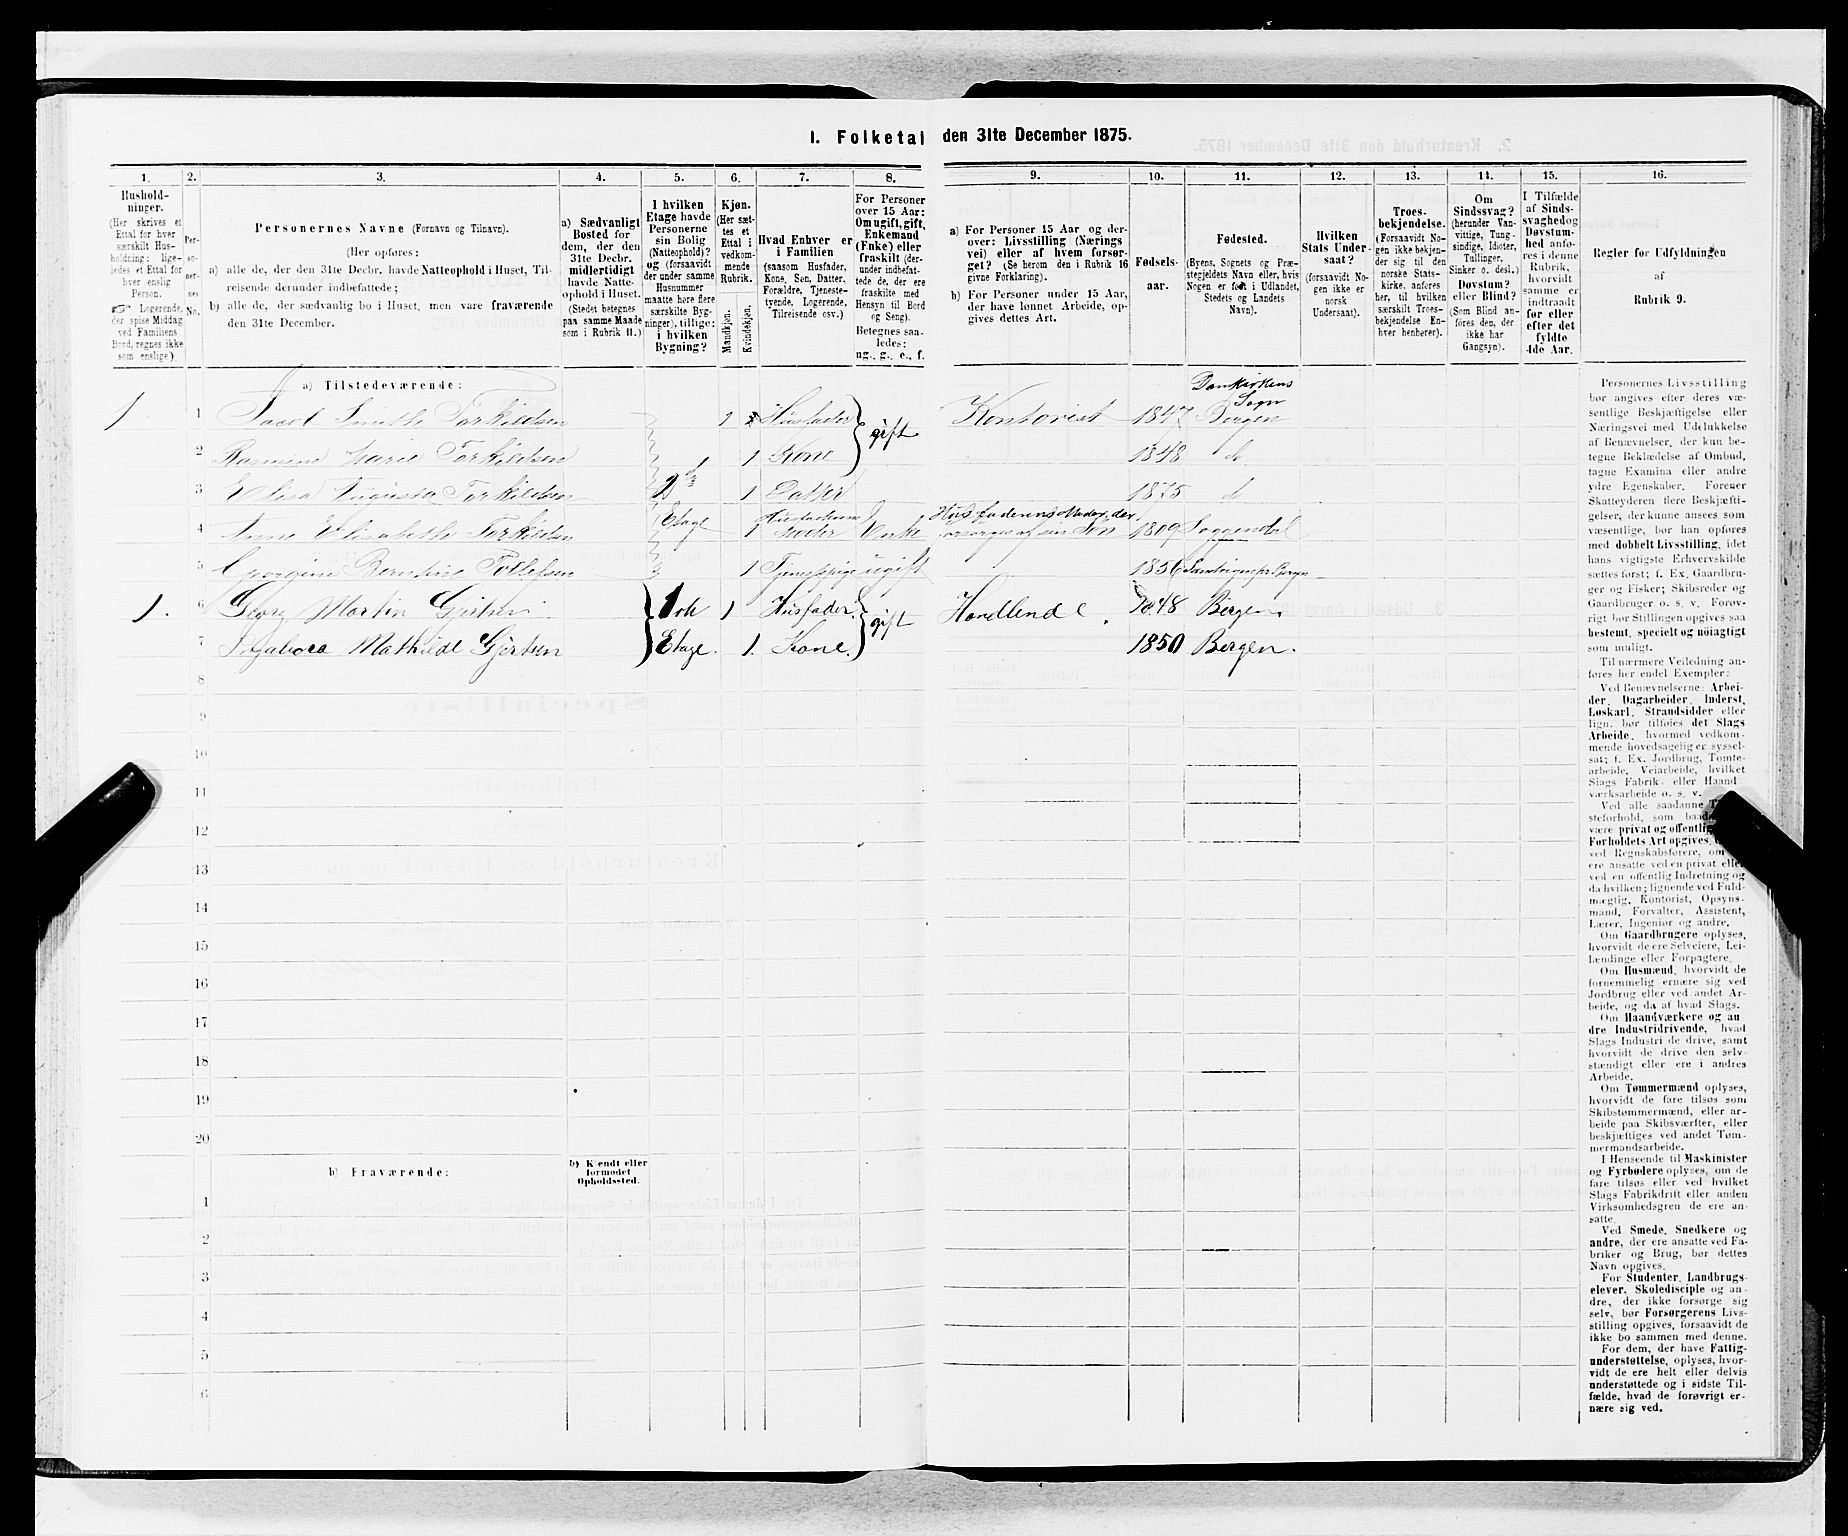 1. Folketal den 31te December 1875.
1. 2. 3. 4. 5. 6. 7. 8. 9. 10. 11. 12. 13. 14. 15. 16.
Husholdninger.
(Her skrives et
Ettal for hver
særskilt Husholdning;
ligeledes et Ettal for
hver enslig
Person.
Logerende,
der spise Middag
ved Familiens
Bord, regnes ikke
som enslige).
Personernes No.
Personernes Navne (Fornavn og Tilnavn).
(Her opføres:
a) alle de, der den 31te Decbr. havde Natteophold i Huset, Tilreisende
derunder indbefattede;
b) alle de, der sædvanlig bo i Huset, men vare fraværende
den 31te December.
a) Sædvanligt
Bosted for
dem, der den
31te Decbr.
midlertidigt
havde Natteophold
i Huset.
(Stedet betegnes
paa samme Maade
som i Rubrik 11.)
I hvilken
Etage havde
Personerne
sin Bolig
(Natteophold)?
og (forsaavidt
der under samme
Husnummer
maatte høre flere
særskilte Bygninger),
tillige:
i hvilken
Bygning?
Kjøn.
(Her sættes
et
Ettal i
vedkommende
Rubrik.
Mandkjøn.
Kvindekjøn.
Hvad Enhver er
i Familien
(saasom Husfader,
Kone, Søn, Datter,
Forældre, Tjenestetyende,
Logerende,
Tilreisende osv.)
For Personer
over 15 Aar:
Om ugift, gift,
Enkemand
(Enke) eller
fraskilt (derunder
indbefattede
de, der ere
fraskilte med
Hensyn til Bord
og Seng).
Betegnes saaledes:
ug., g., e., f.
a) For Personer 15 Aar og derover:
Livsstilling (Næringsvei)
eller af hvem forsørget?
(Se herom den i Rubrik 16
givne Forklaring).
b) For Personer under 15 Aar,
der have lønnet Arbeide, opgives
dettes Art.
Fødselsaar.
Fødested.
(Byens, Sognets og Præstegjeldets
Navn eller, hvis
Nogen er født i Udlandet,
Stedets og Landets
Navn).
Hvilken
Stats Undersaat?
(forsaavidt Nogen
ikke er
norsk
Undersaat).
Troesbekjendelse.
(Forsaavidt Nogen
ikke bekjender
sig til den
norske Statskirke,
anføres
her, til hvilken
særskilt Troesbekjendelse
Enhver
henhører).
Om
Sindssvag?
(herunder Vanvittige,
Tungsindige,
Idioter,
Tullinger,
Sinker o. desl.)
Døvstum?
eller Blind?
(Som Blind anføres
den, der
ikke har
Gangsyn).
I Tilfælde
af Sindssvaghed
og
Døvstumhed
anføres
i denne
Rubrik,
hvorvidt
samme er
indtraadt
før eller
efter det
fyldte
4de Aar.
Regler for Udfyldningen
af
Rubrik 9.
a) Tilstedeværende:
1 1 Jacob Smith Torkildsen 1 Husfader gift Kontorist 1847 Domkirkens Sogn Bergen
2 Rasmine Marie Torkildsen 1 Kone 1848 do
3 Elisa Augusta Torkildsen 2den 1 Datter 1875 do
4 Anne Elisabeth Torkildsen Etage 1 Husfaderens Moder Enke Husfaderens Moder, der forsørges af sin Søn 1809 Soggendal
5 Georgine Berntine Tollefsen 1 Tjenestepige ugift 1856
1. 6 Georg Martin Gjertsen 1ste 1 Husfader gift Handlende 1848 Bergen
7 Ingeborg Mathilde Gjertsen Etage. 1. Kone. 1850 Bergen.
8
9
10
11
12
13
14
15
16
17
18
19
20
b) Fraværende: b) Kjendt eller
formodet
Opholdssted.
1
2
3
4
5
6
Personernes Livsstilling
bør angives efter deres væsentlige
Beskjæftigelse eller
Næringsvei med Udelukkelse
af Benævnelser, der kun betegne
Beklædelse af Ombud,
tagne Examina eller andre
ydre Egenskaber. Forener
Skatteyderen flere Beskjæftigelser,
der kunne ansees som
væsentlige, bør han opføres
med dobbelt Livsstilling, idet
hans vigtigste Erhvervskilde
sættes først; f. Ex. Gaardbruger
og Fisker; Skibsreder og
Gaardbruger o. s. v. Forøvrigt
bør Stillingen opgives saa
bestemt, specielt og nøiagtigt
som muligt.
Til nærmere Veiledning anføres
her endel Exempler:
Ved Benævnelserne: Arbeider,
Dagarbeider, Inderst,
Løskarl, Strandsidder eller
lign. bør tilføies det Slags
Arbeide, hvormed vedkommende
hovedsagelig er sysselsat;
f. Ex. Jordbrug, Tomtearbeide,
Veiarbeide, hvilket
Slags Fabrik- eller Haandværksarbeide
o. s. v.
Ved alle saadanne
være privat og offentlig
Forholdets Art opgives,
ved Regnskabsførere, om
ere ansatte ved en privat eller
ved en offentlig Indretning og
da hvilken; lignende ved Fuldmægtig,
Kontorist, Opsynsmand,
Forvalter, Assistent,
Lærer, Ingeniør og andre.
Om Gaardbrugere oplyses,
hvorvidt de ere Selveiere, Leilændinge
eller Forpagtere.
Om Husmænd, hvorvidt de
fornemmelig ernære sig ved
Jordbrug eller ved andet Arbeide,
og da af hvad Slags.
Om Haandværkere og andre
Industridrivende, hvad
Slags Industri de drive, samt
hvorvidt de drive den selvstændigt
eller ere i andres
Arbeide.
Om Tømmermænd oplyses,
hvorvidt de fare tilsøs som
Skibstømmermænd, eller arbeide
paa Skibsværfter, eller
beskjæftiges ved andet Tømmermandsarbeide.
I Henseende til Maskinister
og Fyrbødere oplyses, om de
fare tilsøs eller ved hvilket
Slags Fabrikdrift eller anden
Virksomhedsgren de ere ansatte.
Ved Smede, Snedkere og
andre, der ere ansatte ved Fabriker
og Brug, bør dettes
Navn opgives.
For Studenter, Landbrugselever,
Skoledisciple og andre,
der ikke forsørge sig
selv, bør Forsørgerens Livsstilling
opgives, forsaavidt de
ikke bo sammen med denne.
For dem, der have Fattigunderstøttelse,
oplyses, hvorvidt
de ere helt eller delvis
understøttede og i sidste Tilfælde,
hvad de forøvrigt ernære
sig ved.